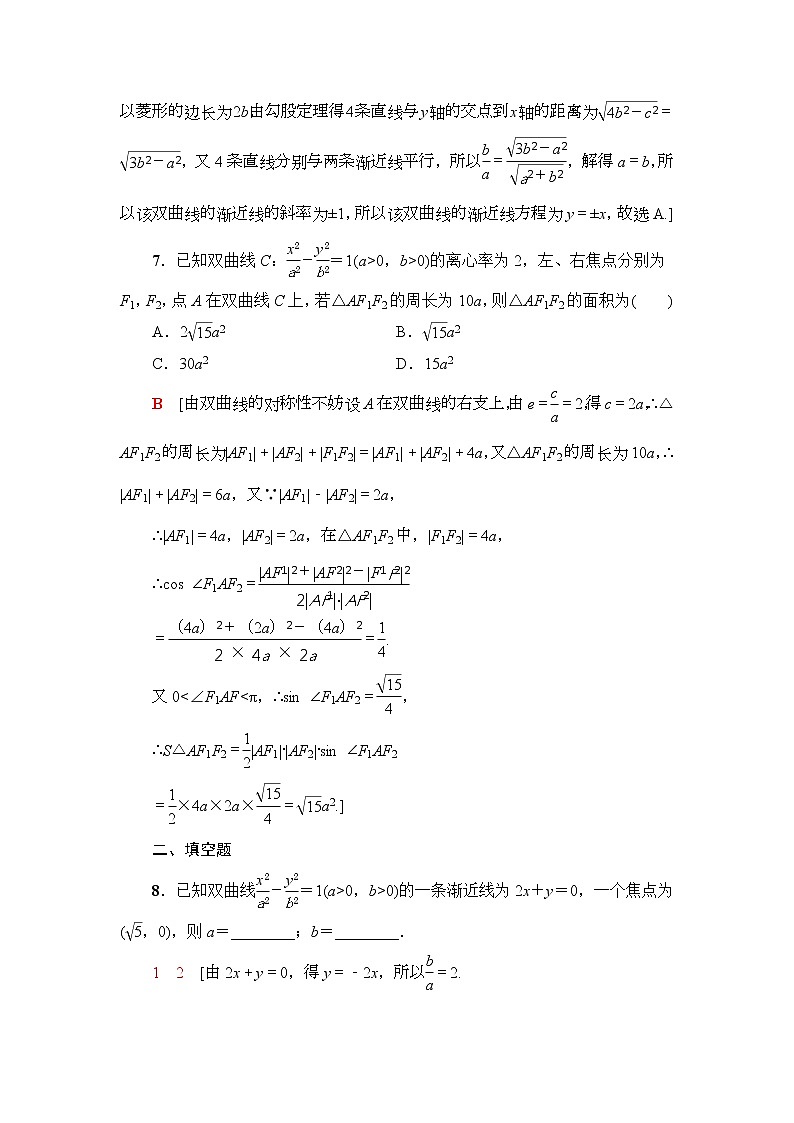 以菱形的边长为2b由勾股定理得4条直线与y轴的交点到x轴的距离为√(4b2－c2)＝
√(3b2－a2)，又4条直线分别与两条渐近线平行，所以b/a＝√(3b2－a2)/√(a2＋b2)，解得a＝b，所
以该双曲线的渐近线的斜率为±1，所以该双曲线的渐近线方程为y＝±x，故选A.]
7．已知双曲线C：x²/a²－y²/b²＝1(a>0，b>0)的离心率为2，左、右焦点分别为
F1，F2，点A在双曲线C上，若△AF1F2的周长为10a，则△AF1F2的面积为(　　)
A．2√15a²　　B．√15a²
C．30a²　　D．15a²
B　[由双曲线的对称性不妨设A在双曲线的右支上，由e＝c/a＝2，得c＝2a，∴△
AF1F2的周长为|AF1|＋|AF2|＋|F1F2|＝|AF1|＋|AF2|＋4a，又△AF1F2的周长为10a，∴
|AF1|＋|AF2|＝6a，又∵|AF1|－|AF2|＝2a，
∴|AF1|＝4a，|AF2|＝2a，在△AF1F2中，|F1F2|＝4a，
∴cos ∠F1AF2＝(|AF1|2＋|AF2|2－|F1F2|2)/(2|AF1|·|AF2|)
＝(（4a）2＋（2a）2－（4a）2)/(2×4a×2a)＝1/4.
又0<∠F1AF<π，∴sin ∠F1AF2＝√15/4，
∴S△AF1F2＝1/2|AF1|·|AF2|·sin ∠F1AF2
＝1/2×4a×2a×√15/4＝√15a².]
二、填空题
8．已知双曲线x²/a²－y²/b²＝1(a>0，b>0)的一条渐近线为2x＋y＝0，一个焦点为
(√5，0)，则a＝________；b＝________．
1　2　[由2x＋y＝0，得y＝－2x，所以b/a＝2.